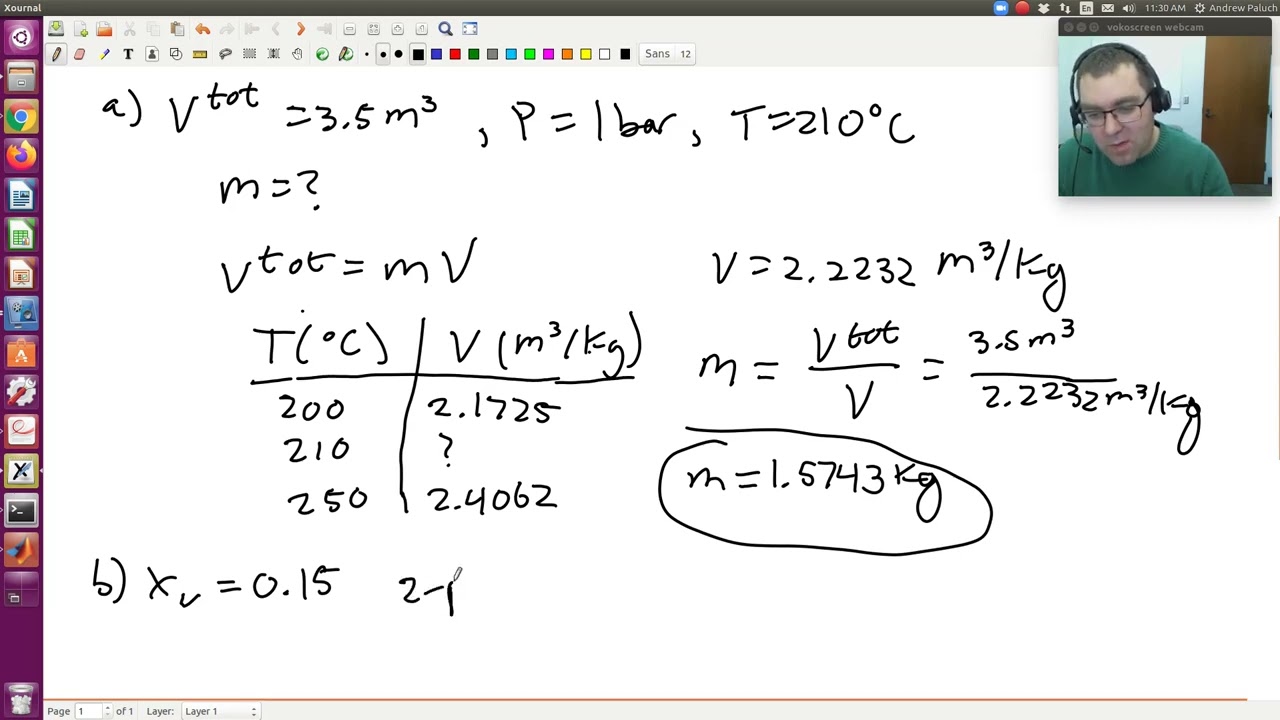 Xournal
En
11:30 AM
Andrew Paluch
vokoscreen webcam
Sans 12
a) V^tot = 3.5 m³, P = 1 bar, T = 210°C
m = ?
V^tot = m V
V = 2.2232 m³/kg
T(°C) | V (m³/kg)
200 | 2.1725
210 | ?
250 | 2.4062
m = V^tot / V = 3.5 m³ / 2.2232 m³/kg
m = 1.5743 kg
b) x_v = 0.15 2-p
Page 1 of 1 Layer: Layer 1